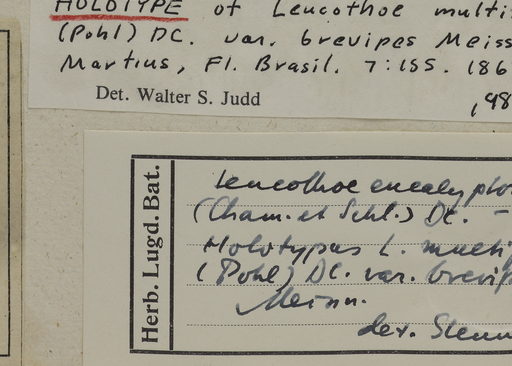 HOLOTYPE of Leucothoe multi
(Pohl) DC. var. brevipes Meiss
Martius, Fl. Brasil. 7:155. 186
Det. Walter S. Judd
,98
Herb. Lugd. Bat.
Leucothoe eucalypto
(Cham. et Schl.) DC. -
Holotypus L. multi
(Pohl) DC. var. brevip
Meisn.
det. Sleum